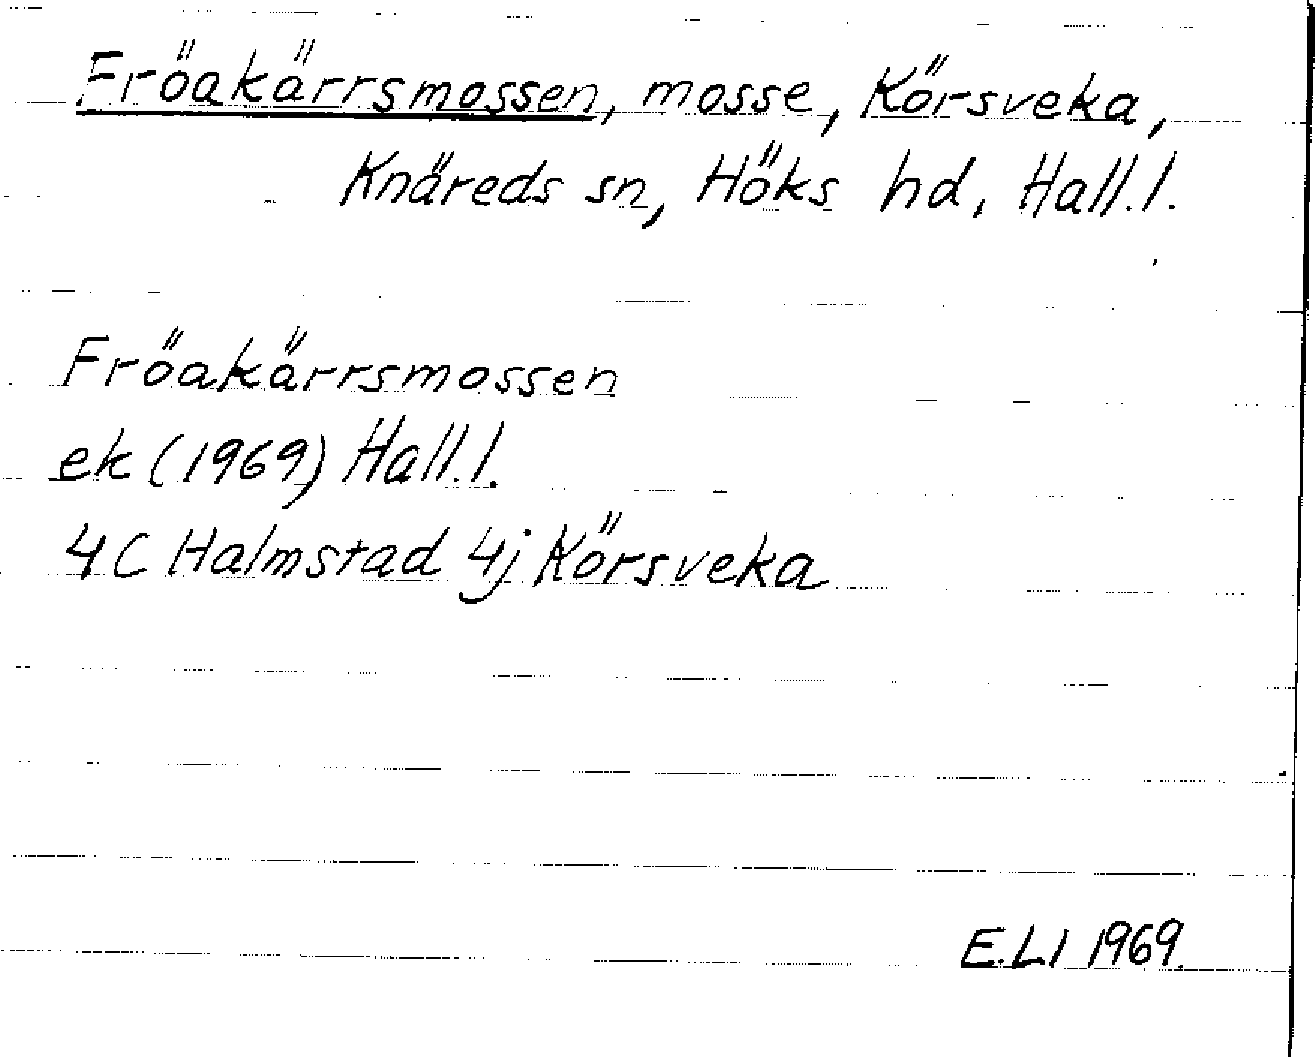 Fröakärrsmossen, mosse, Körsveka,
Knäreds sn, Höks hd, Hall.l.
Fröakärrsmossen
ek (1969) Hall.l.
4C Halmstad 4j Körsveka
E.Ll 1969.